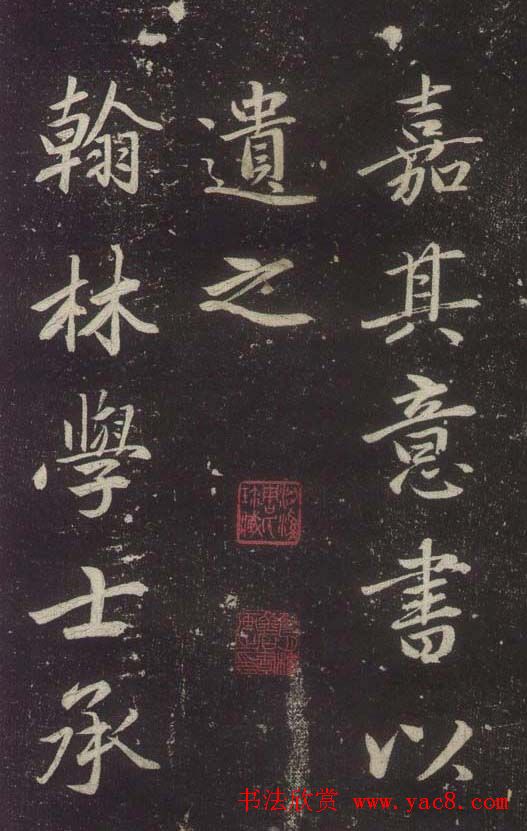 嘉其意書以
遺之
翰林學士承
书法欣赏 www.yac8.com